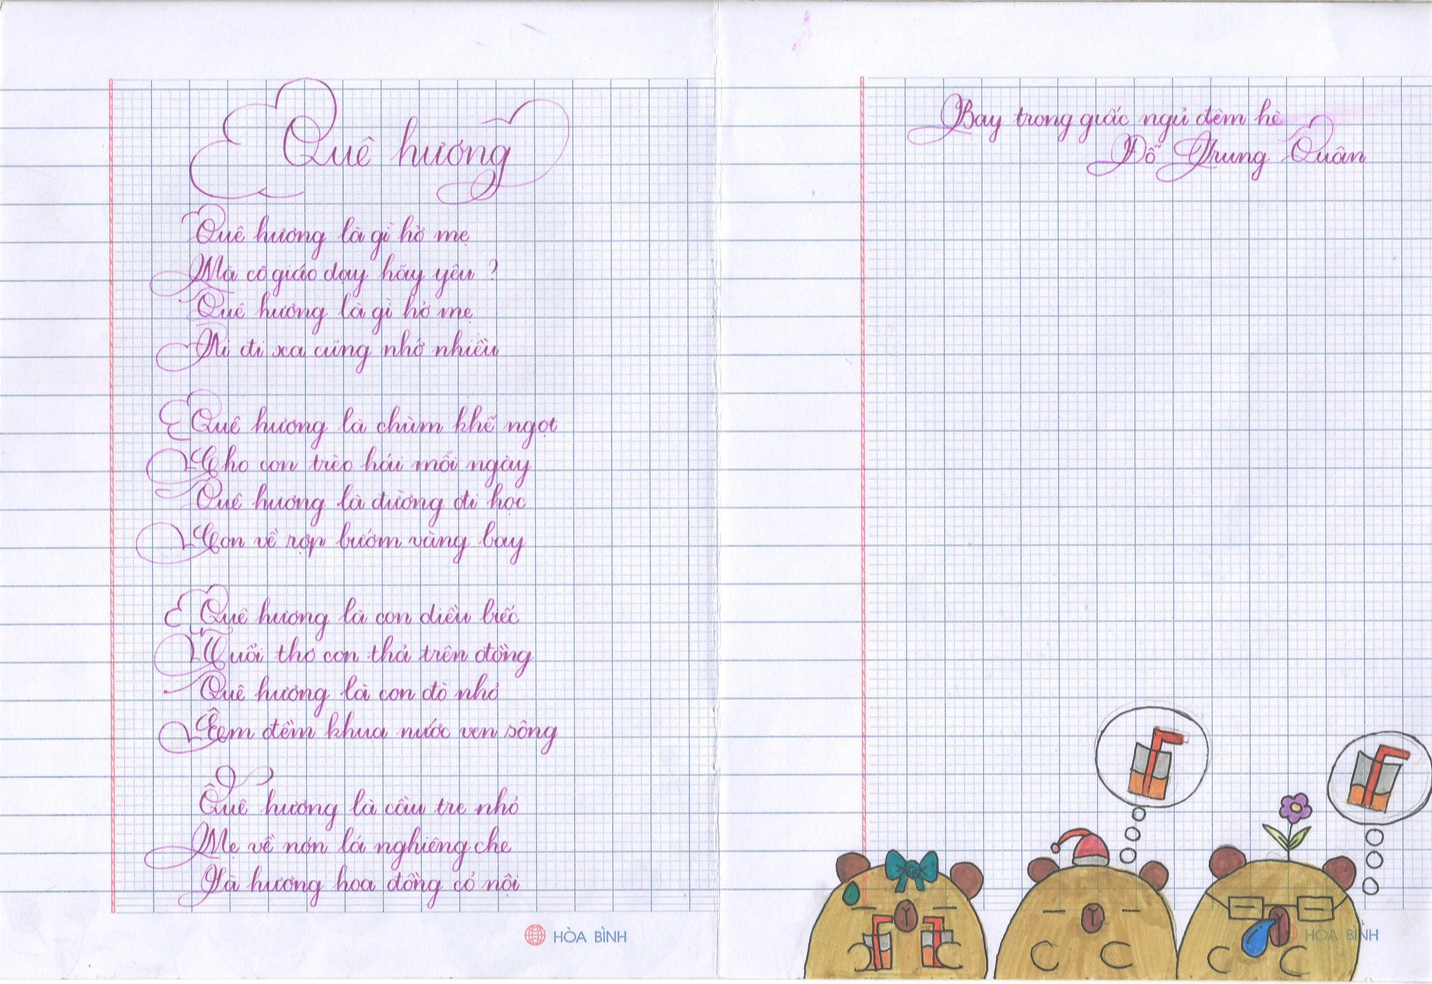 Quê hương
Quê hương là gì hở mẹ
Mà cô giáo dạy hãy yêu ?
Quê hương là gì hở mẹ
Ai đi xa cũng nhớ nhiều
Quê hương là chùm khế ngọt
Cho con trèo hái mỗi ngày
Quê hương là đường đi học
Con về rợp bướm vàng bay
Quê hương là con diều biếc
Tuổi thơ con thả trên đồng
Quê hương là con đò nhỏ
Êm đềm khua nước ven sông
Quê hương là cầu tre nhỏ
Mẹ về nón lá nghiêng che
Là hương hoa đồng cỏ nội
HÒA BÌNH
Bay trong giấc ngủ đêm hè
Đỗ Trung Quân
HÒA BÌNH